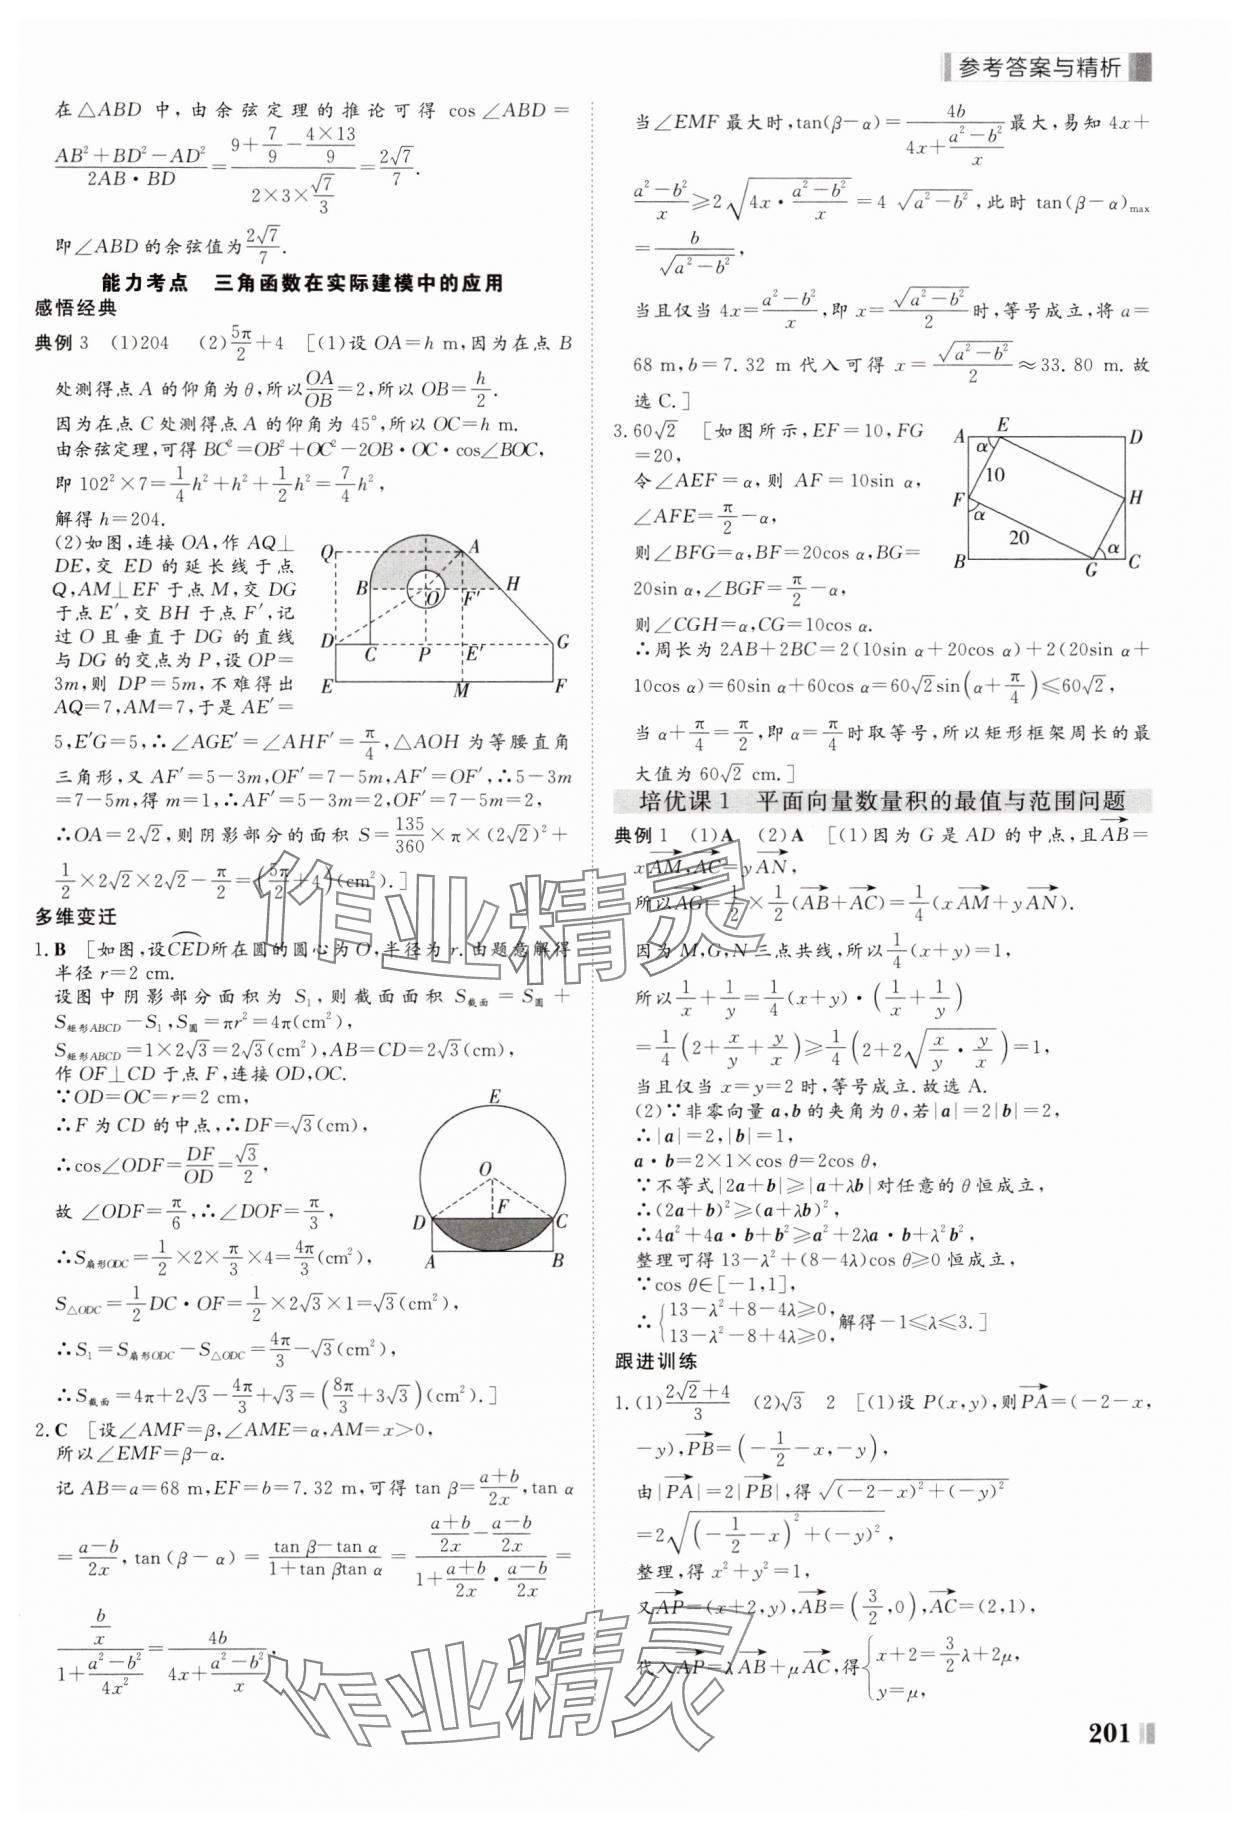 参考答案与精析
在△ABD 中,由余弦定理的推论可得 cos∠ABD=
(AB²+BD²-AD²)/(2AB·BD)=(9+7/9-(4×13)/9)/(2×3×√7/3)=2√7/7.
即∠ABD的余弦值为2√7/7.
能力考点 三角函数在实际建模中的应用
感悟经典
典例 3 (1)204 (2)5π/2+4 [(1)设 OA=h m,因为在点 B
处测得点 A 的仰角为θ,所以OA/OB=2,所以 OB=h/2.
因为在点 C 处测得点 A 的仰角为 45°,所以 OC=h m.
由余弦定理,可得 BC²=OB²+OC²-2OB·OC·cos∠BOC,
即 102²×7=1/4h²+h²+1/2h²=7/4h²,
解得 h=204.
(2)如图,连接 OA,作 AQ⊥
DE,交 ED 的延长线于点
Q,AM⊥EF 于点 M,交 DG
于点 E′,交 BH 于点 F′,记
过 O 且垂直于 DG 的直线
与 DG 的交点为 P,设 OP=
3m,则 DP=5m,不难得出
AQ=7,AM=7,于是 AE′=
Q A B O F′ H D C P E′ G E M F
5,E′G=5,∴∠AGE′=∠AHF′=π/4,△AOH 为等腰直角
三角形,又 AF′=5-3m,OF′=7-5m,AF′=OF′,∴5-3m
=7-5m,得 m=1,∴AF′=2,OF′=2,
∴OA=2√2,则阴影部分的面积 S=135/360×π×(2√2)²+
1/2×2√2×2√2-π/2=(5π/2+4)(cm²).]
多维变迁
1. B [如图,设CED所在圆的圆心为 O,半径为 r.由题意解得
半径 r=2 cm.
设图中阴影部分面积为 S₁,则截面面积 S截面=S圆+
S矩形ABCD-S₁,S圆=πr²=4π(cm²),
S矩形ABCD=1×2√3=2√3(cm²),AB=CD=2√3(cm),
作 OF⊥CD 于点 F,连接 OD,OC.
∵OD=OC=r=2 cm,
∴F 为 CD 的中点,∴DF=√3(cm),
∴cos∠ODF=DF/OD=√3/2,
故 ∠ODF=π/6,∴∠DOF=π/3,
E O D F C A B
∴S扇形ODC=1/2×2×π/3×4=4π/3(cm²),
S△ODC=1/2DC·OF=1/2×2√3×1=√3(cm²),
∴S₁=S扇形ODC-S△ODC=4π/3-√3(cm²),
∴S截面=4π+2√3-4π/3+√3=(8π/3+3√3)(cm²).]
2. C [设∠AMF=β,∠AME=α,AM=x>0,
所以∠EMF=β-α.
记 AB=a=68 m,EF=b=7.32 m,可得 tan β=(a+b)/2x,tan α
=(a-b)/2x,tan(β-α)=(tan β-tan α)/(1+tan βtan α)=((a+b)/2x-(a-b)/2x)/(1+(a+b)/2x·(a-b)/2x)=
(b/x)/(1+(a²-b²)/4x²)=4b/(4x+(a²-b²)/x).
当∠EMF 最大时,tan(β-α)=4b/(4x+(a²-b²)/x)最大,易知 4x+
(a²-b²)/x≥2√(4x·(a²-b²)/x)=4√(a²-b²),此时 tan(β-α)max
=b/√(a²-b²),
当且仅当 4x=(a²-b²)/x,即 x=√(a²-b²)/2时,等号成立,将 a=
68 m,b=7.32 m 代入可得 x=√(a²-b²)/2≈33.80 m.故
选 C.]
3. 60√2 [如图所示,EF=10,FG
=20,
令∠AEF=α,则 AF=10sin α,
∠AFE=π/2-α,
则∠BFG=α,BF=20cos α,BG=
20sin α,∠BGF=π/2-α,
则∠CGH=α,CG=10cos α.
A E D α 10 F H α 20 α B G C
∴周长为 2AB+2BC=2(10sin α+20cos α)+2(20sin α+
10cos α)=60sin α+60cos α=60√2sin(α+π/4)≤60√2,
当 α+π/4=π/2,即 α=π/4时取等号,所以矩形框架周长的最
大值为 60√2 cm.]
培优课 1 平面向量数量积的最值与范围问题
典例 1 (1)A (2)A [(1)因为 G 是 AD 的中点,且AB=
xAM,AC=yAN,
所以AG=1/2×1/2(AB+AC)=1/4(xAM+yAN).
因为 M,G,N 三点共线,所以1/4(x+y)=1,
所以1/x+1/y=1/4(x+y)·(1/x+1/y)
=1/4(2+x/y+y/x)≥1/4(2+2√(x/y·y/x))=1,
当且仅当 x=y=2 时,等号成立.故选 A.
(2)∵非零向量 a,b 的夹角为 θ,若|a|=2|b|=2,
∴|a|=2,|b|=1,
a·b=2×1×cos θ=2cos θ,
∵不等式|2a+b|≥|a+λb|对任意的 θ 恒成立,
∴(2a+b)²≥(a+λb)²,
∴4a²+4a·b+b²≥a²+2λa·b+λ²b²,
整理可得 13-λ²+(8-4λ)cos θ≥0 恒成立,
∵cos θ∈[-1,1],
∴{13-λ²+8-4λ≥0, 13-λ²-8+4λ≥0, 解得-1≤λ≤3.]
跟进训练
1.(1)(2√2+4)/3 (2)√3 2 [(1)设 P(x,y),则PA=(-2-x,
-y),PB=(-1/2-x,-y),
由|PA|=2|PB|,得 √((-2-x)²+(-y)²)
=2√((-1/2-x)²+(-y)²),
整理,得 x²+y²=1,
又AP=(x+2,y),AB=(3/2,0),AC=(2,1),
代入AP=λAB+μAC,得{x+2=3/2λ+2μ, y=μ,
作业精灵
作业精灵
201